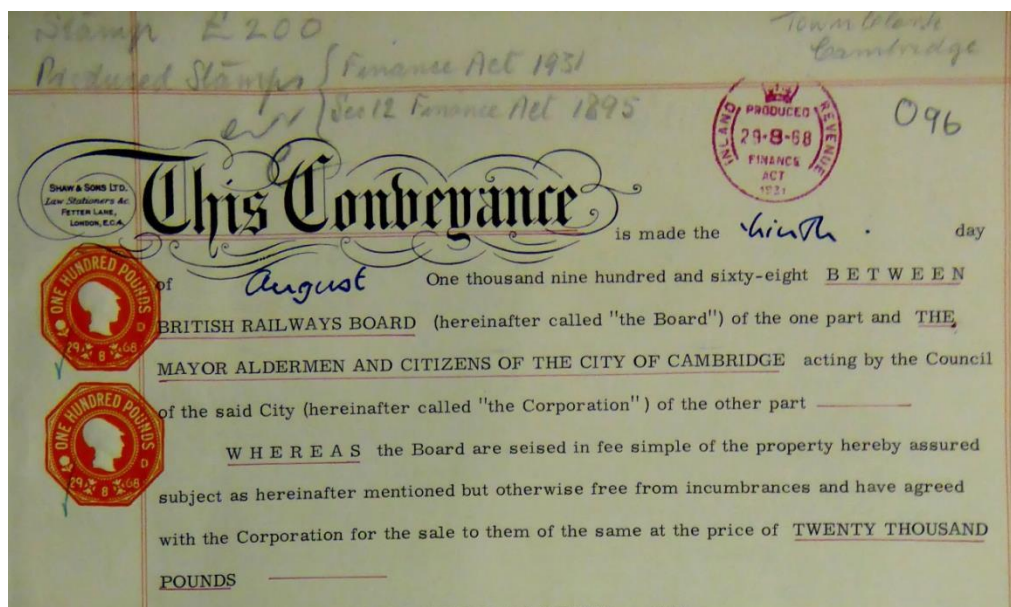 Stamp £200
Town Clerk
Cambridge
Produced Stamps { Finance Act 1931
{ Sec 12 Finance Act 1895
096
INLAND REVENUE
PRODUCED
29·8·68
FINANCE
ACT
1931
SHAW & SONS LTD.
Law Stationers &c.
FETTER LANE,
LONDON, E.C.4.
This Conveyance is made the ninth . day
of August One thousand nine hundred and sixty-eight BETWEEN
BRITISH RAILWAYS BOARD (hereinafter called "the Board") of the one part and THE
MAYOR ALDERMEN AND CITIZENS OF THE CITY OF CAMBRIDGE acting by the Council
of the said City (hereinafter called "the Corporation") of the other part
WHEREAS the Board are seised in fee simple of the property hereby assured
subject as hereinafter mentioned but otherwise free from incumbrances and have agreed
with the Corporation for the sale to them of the same at the price of TWENTY THOUSAND
POUNDS
ONE HUNDRED POUNDS
D
29 8 68
ONE HUNDRED POUNDS
D
29 8 68